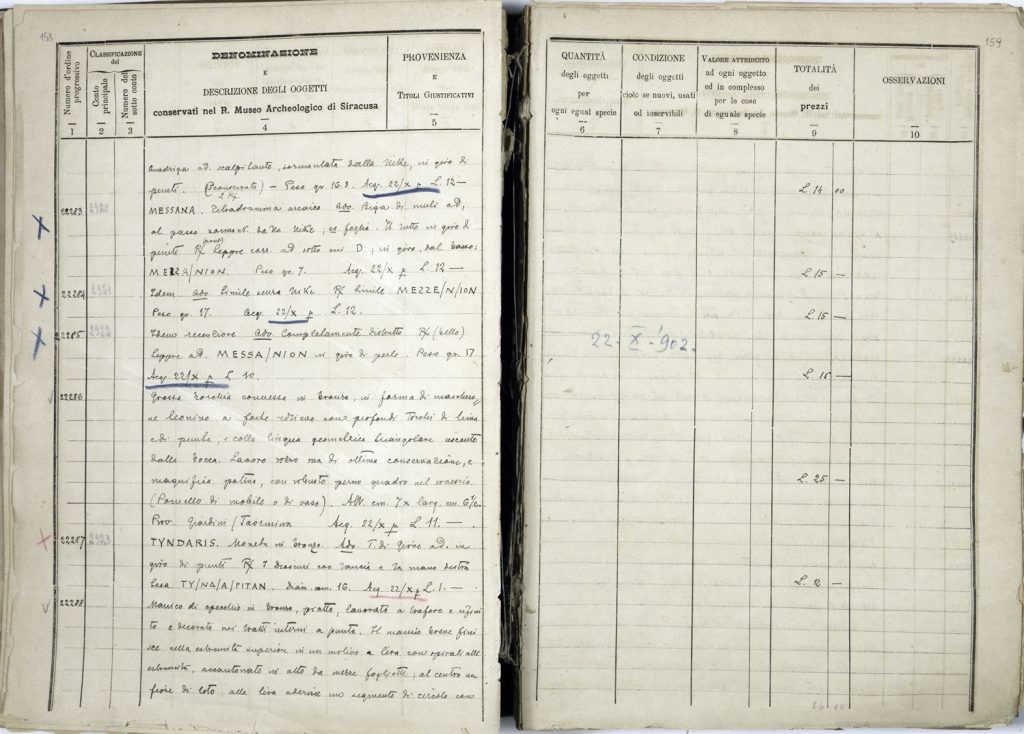 158
Numero d'ordine progressivo
CLASSIFICAZIONE
del
Conto principale
Numero del sotto conto
DENOMINAZIONE
E
DESCRIZIONE DEGLI OGGETTI
conservati nel R. Museo Archeologico di Siracusa
PROVENIENZA
E
TITOLI GIUSTIFICATIVI
1 2 3 4 5
quadriga ad. scalpitante, sormontata dalla Nike, in giro di
punti. – Peso gr. 16.3. Acq. 22/X p L. 12 —
22283 2920 MESSANA. Tetradramma arcaico Adv. Biga di muli ad,
al passo sormont. dalla Nike; es foglia. Il tutto in giro di
punti R/ Leppre corr. ad sotto cui D; in giro, dal basso:
MEZZA/NION. Peso gr. 7. Acq. 22/X p L. 12 —
22284 2921 Idem adv simile senza Nike R/ simile MEZZE/N/ION
Peso gr. 17. Acq. 22/X p L. 12.
22285 2922 Idem recenziore Adv. Completamente distrutto R/ (bello)
Leppre ad. MESSA/NION in giro di perle. Peso gr. 17
Acq. 22/X p L 10.
22286 Grossa borchia convessa in bronzo, in forma di mascheronne
leonino a forte rilievo con profondi tocchi di lima
e di punta, e colla lingua geometrica triangolare uscente
dalla bocca. Lavoro robro ma di ottima conservazione, e
magnifica patina, con robusto perno quadro nel rovescio
(Pomello di mobile o di vaso). Alt. cm. 7 x larg. cm 6 1/2.
Prov. Giardini (Taormina Acq. 22/X p L 11. —
22287 2923 TYNDARIS. Moneta in bronzo. Adv. T. di Giove ad. in
giro di punti R/ I dioscuri con lancia e la mano destra
tesa TY/NΔ/A/PITAN. Diam. mm. 16. Acq. 22/X p L. 1. —
22288 Manico di specchio in bronzo, piatto, lavorato a traforo e rifinito
e decorato nei tratti interni a punta. Il manico breve finisce
nella estremità superiore in un motivo a lira con spirali alle
estremità, accantonate in alto da mezze fogliette; al centro un
fiore di loto, alla lira aderisce un segmento di circolo con
159
QUANTITÀ
degli oggetti
per
ogni egual specie
CONDIZIONE
degli oggetti
cioè: se nuovi, usati
od inservibili
VALORE ATTRIBUITO
ad ogni oggetto
od in complesso
per le cose
di eguale specie
TOTALITÀ
dei
prezzi
OSSERVAZIONI
6 7 8 9 10
L. 14 00
L. 15 —
L. 15 —
22 - X - '902.
L. 15 —
L. 25 —
L. 2 —
86 00